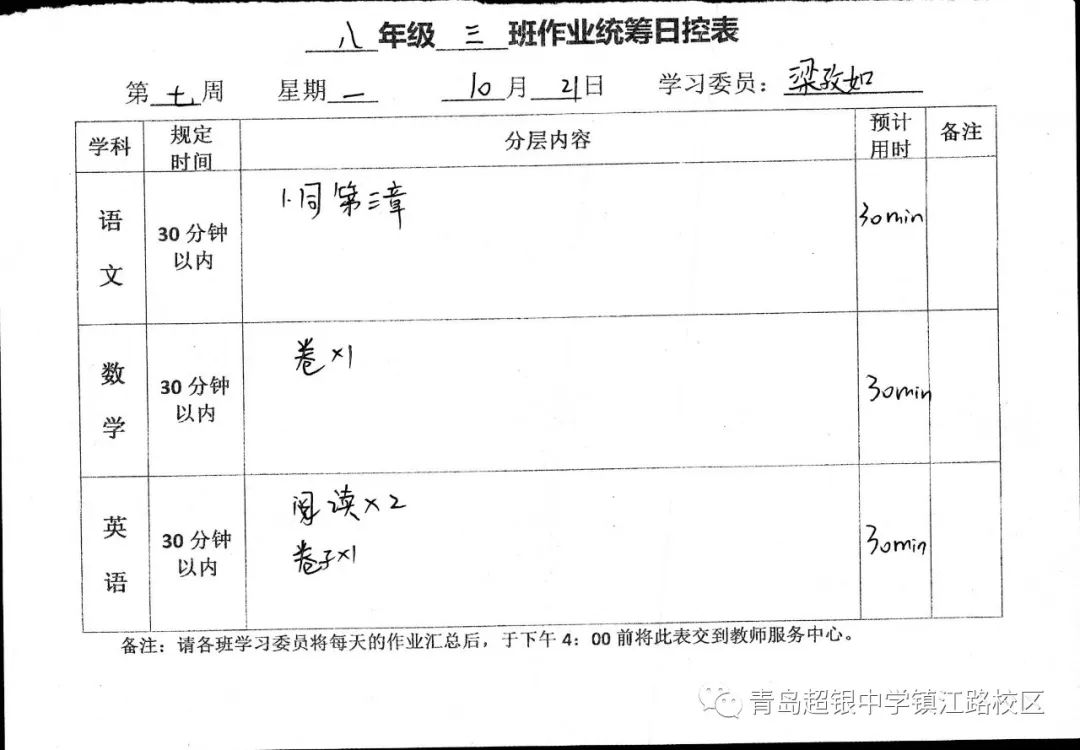 八年级三班作业统筹日控表
第七周 星期一 10月21日 学习委员：梁孜如
学科 规定时间 分层内容 预计用时 备注
语文 30分钟以内 1.同第三章 30min
数学 30分钟以内 卷×1 30min
英语 30分钟以内 阅读×2 30min
卷子×1
备注：请各班学习委员将每天的作业汇总后，于下午4：00前将此表交到教师服务中心。
青岛超银中学镇江路校区